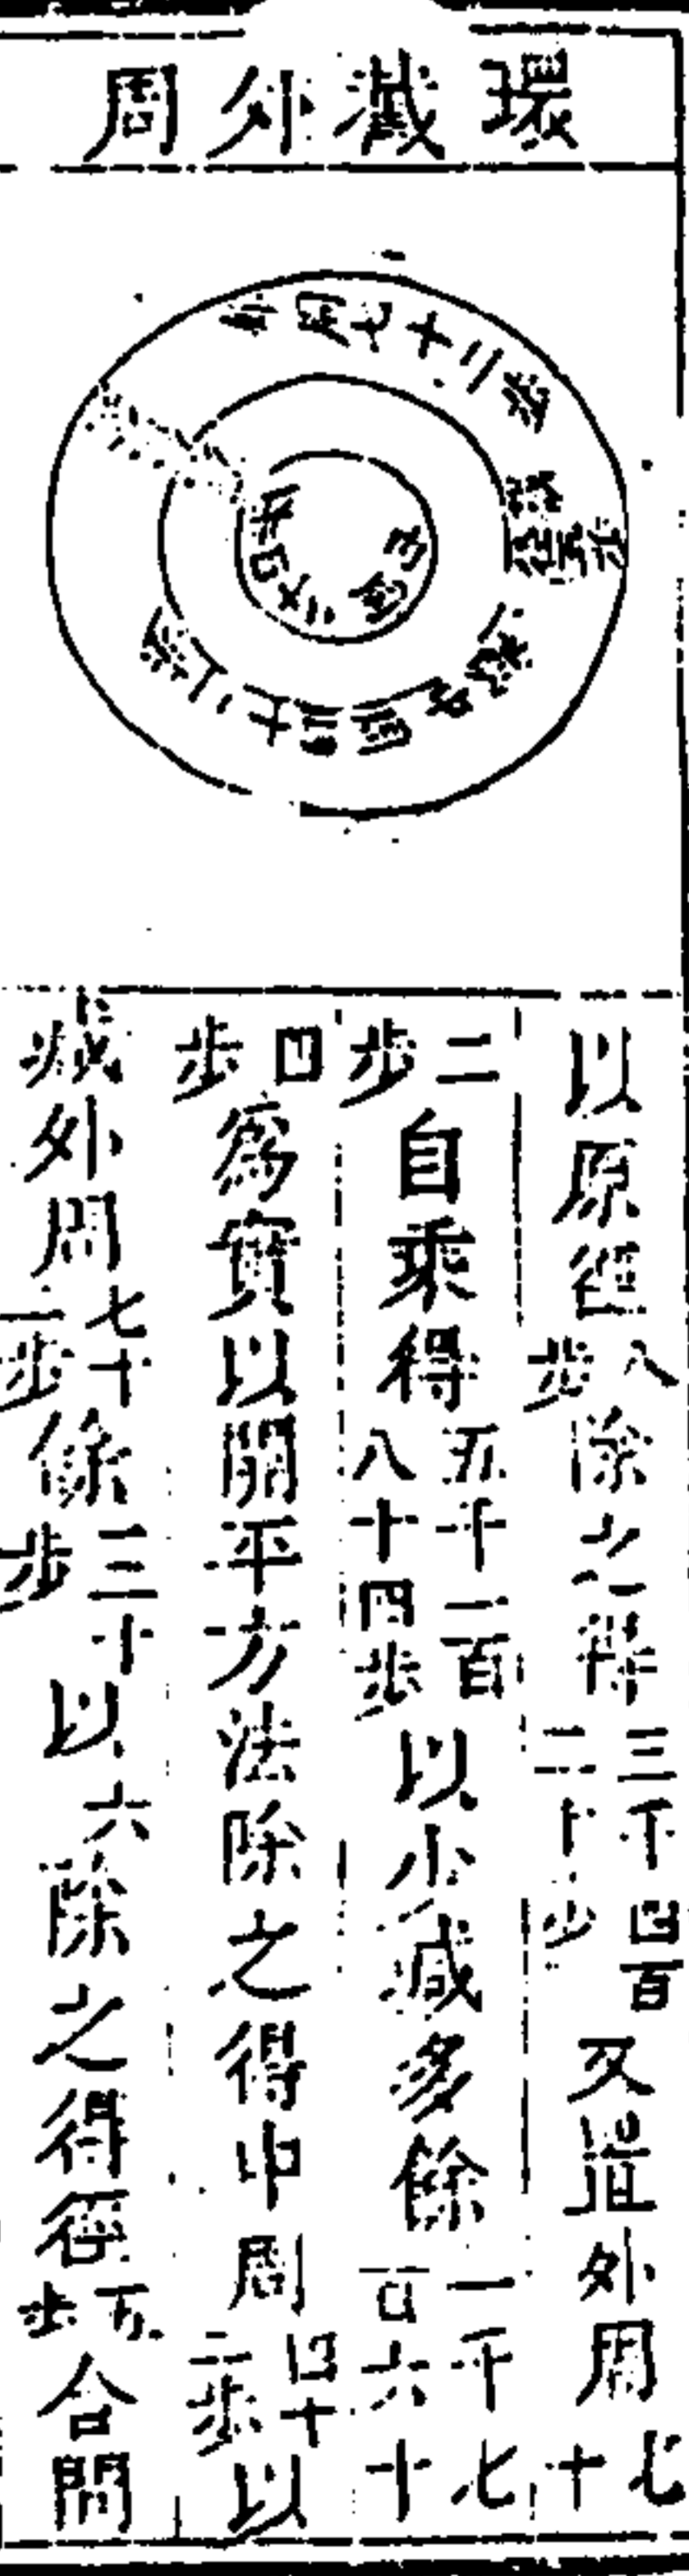 環截外周
以原徑八步除之得三千四百二十步又置外周七十
二步自乘得五千一百八十四步以少減多餘一千七百六十
四步為實以開平方法除之得中周四十二步以
減外周七十二步餘三十步以六除之得徑五步合問